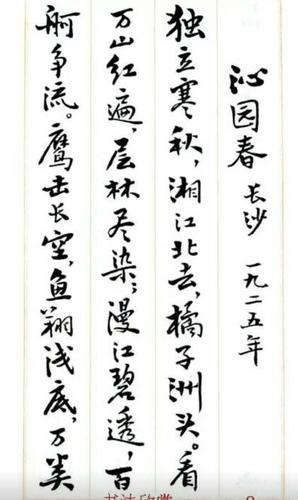 沁园春 长沙 一九二五年
独立寒秋，湘江北去，橘子洲头。看
万山红遍，层林尽染；漫江碧透，百
舸争流。鹰击长空，鱼翔浅底，万类
书法欣赏